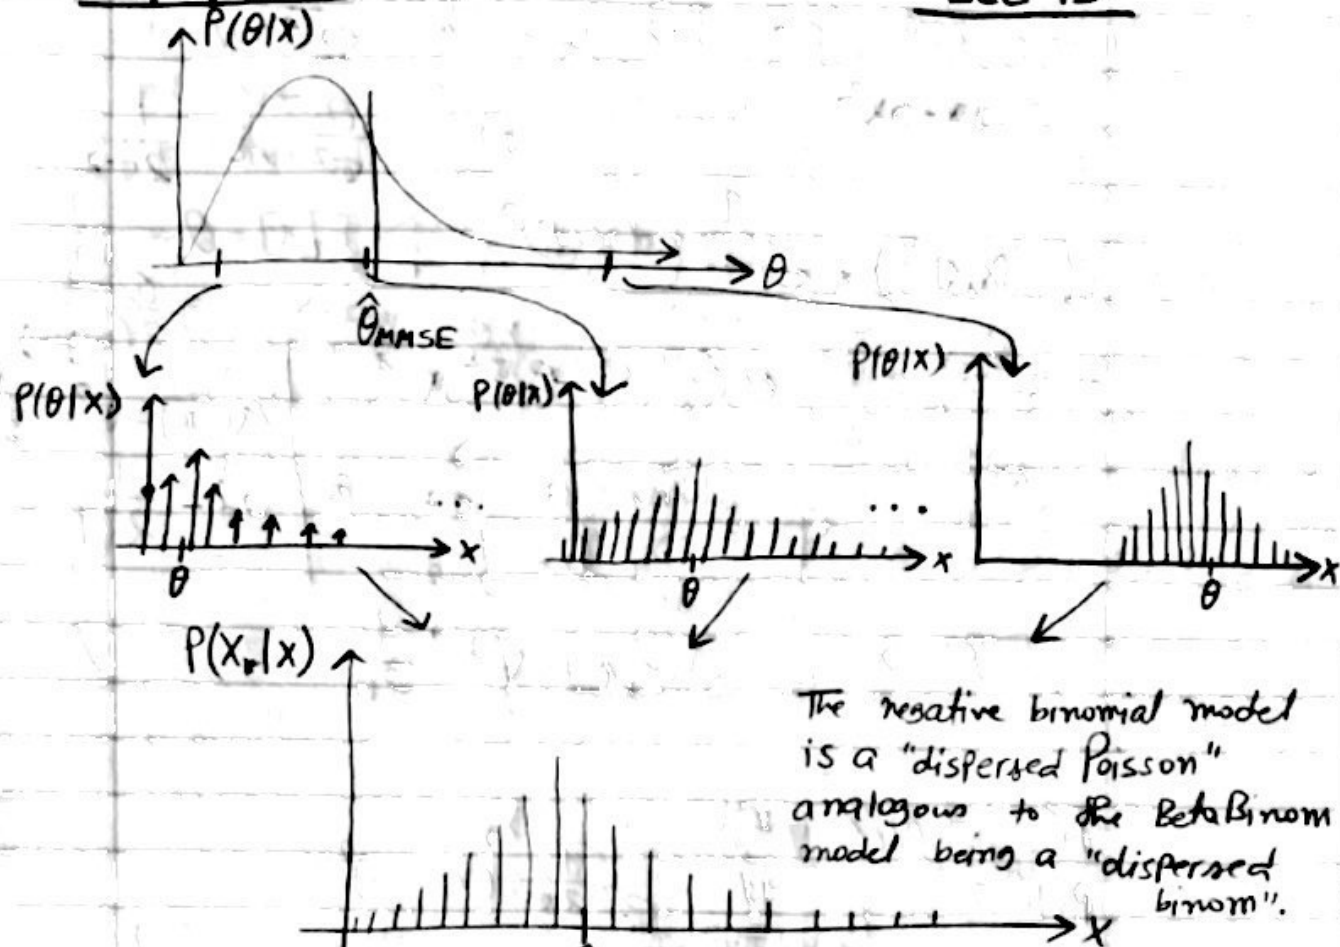 P(θ|x)
θ
θ̂MMSE
P(θ|x)
P(θ|x)
P(θ|x)
...
...
x
x
x
θ
θ
θ
P(X*|x)
The negative binomial model
is a "dispersed Poisson"
analogous to the BetaBinom
model being a "dispersed
binom".
x